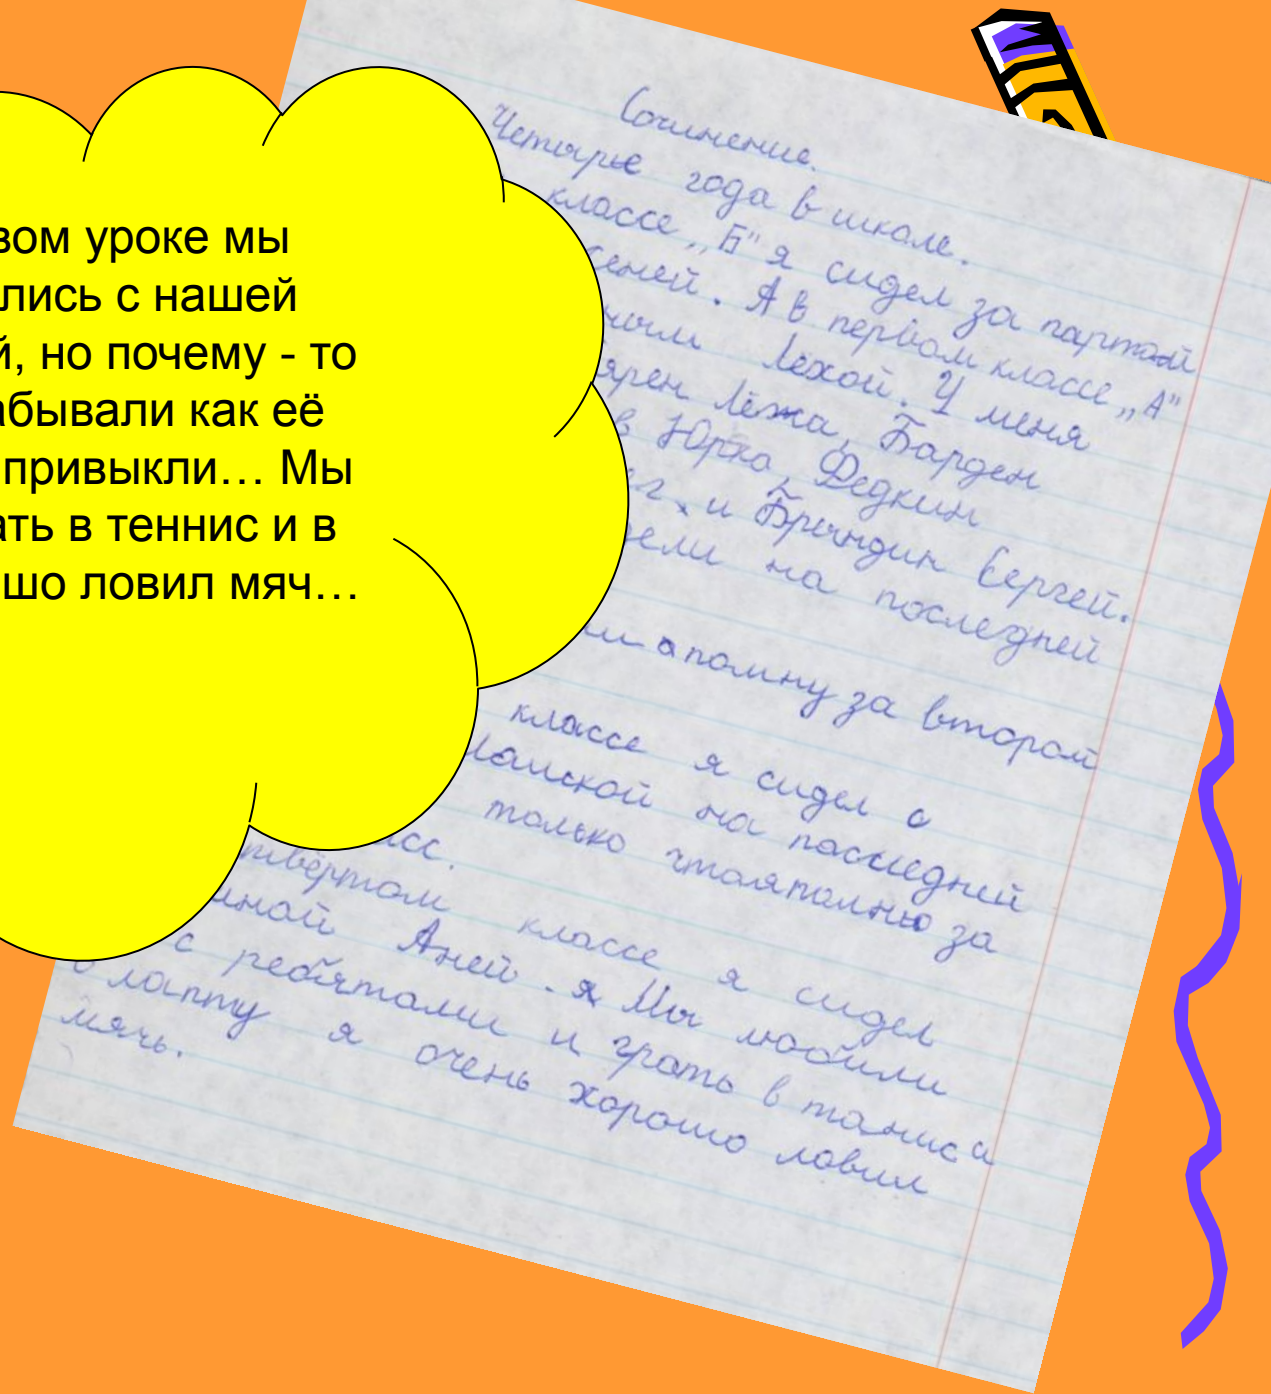 вом уроке мы
лись с нашей
й, но почему - то
абывали как её
привыкли... Мы
ать в теннис и в
шо ловил мяч...
Сочинение.
Четырье года в школе.
классе „Б" я сидел за партай
сеней. А в первом классе „А"
Лехой. У меня
ярен Лёжа, Барден
в Юрка, Федкин
и Брындин Сергей.
на последней
апомну за втором
классе я сидел с
на паследней
только чтояпомню за
сс.
твёртом классе я сидел
иной Аней. я Мы любили
с ребятами и грать в танис и
в лапту я очень хорошо ловил
мячь.